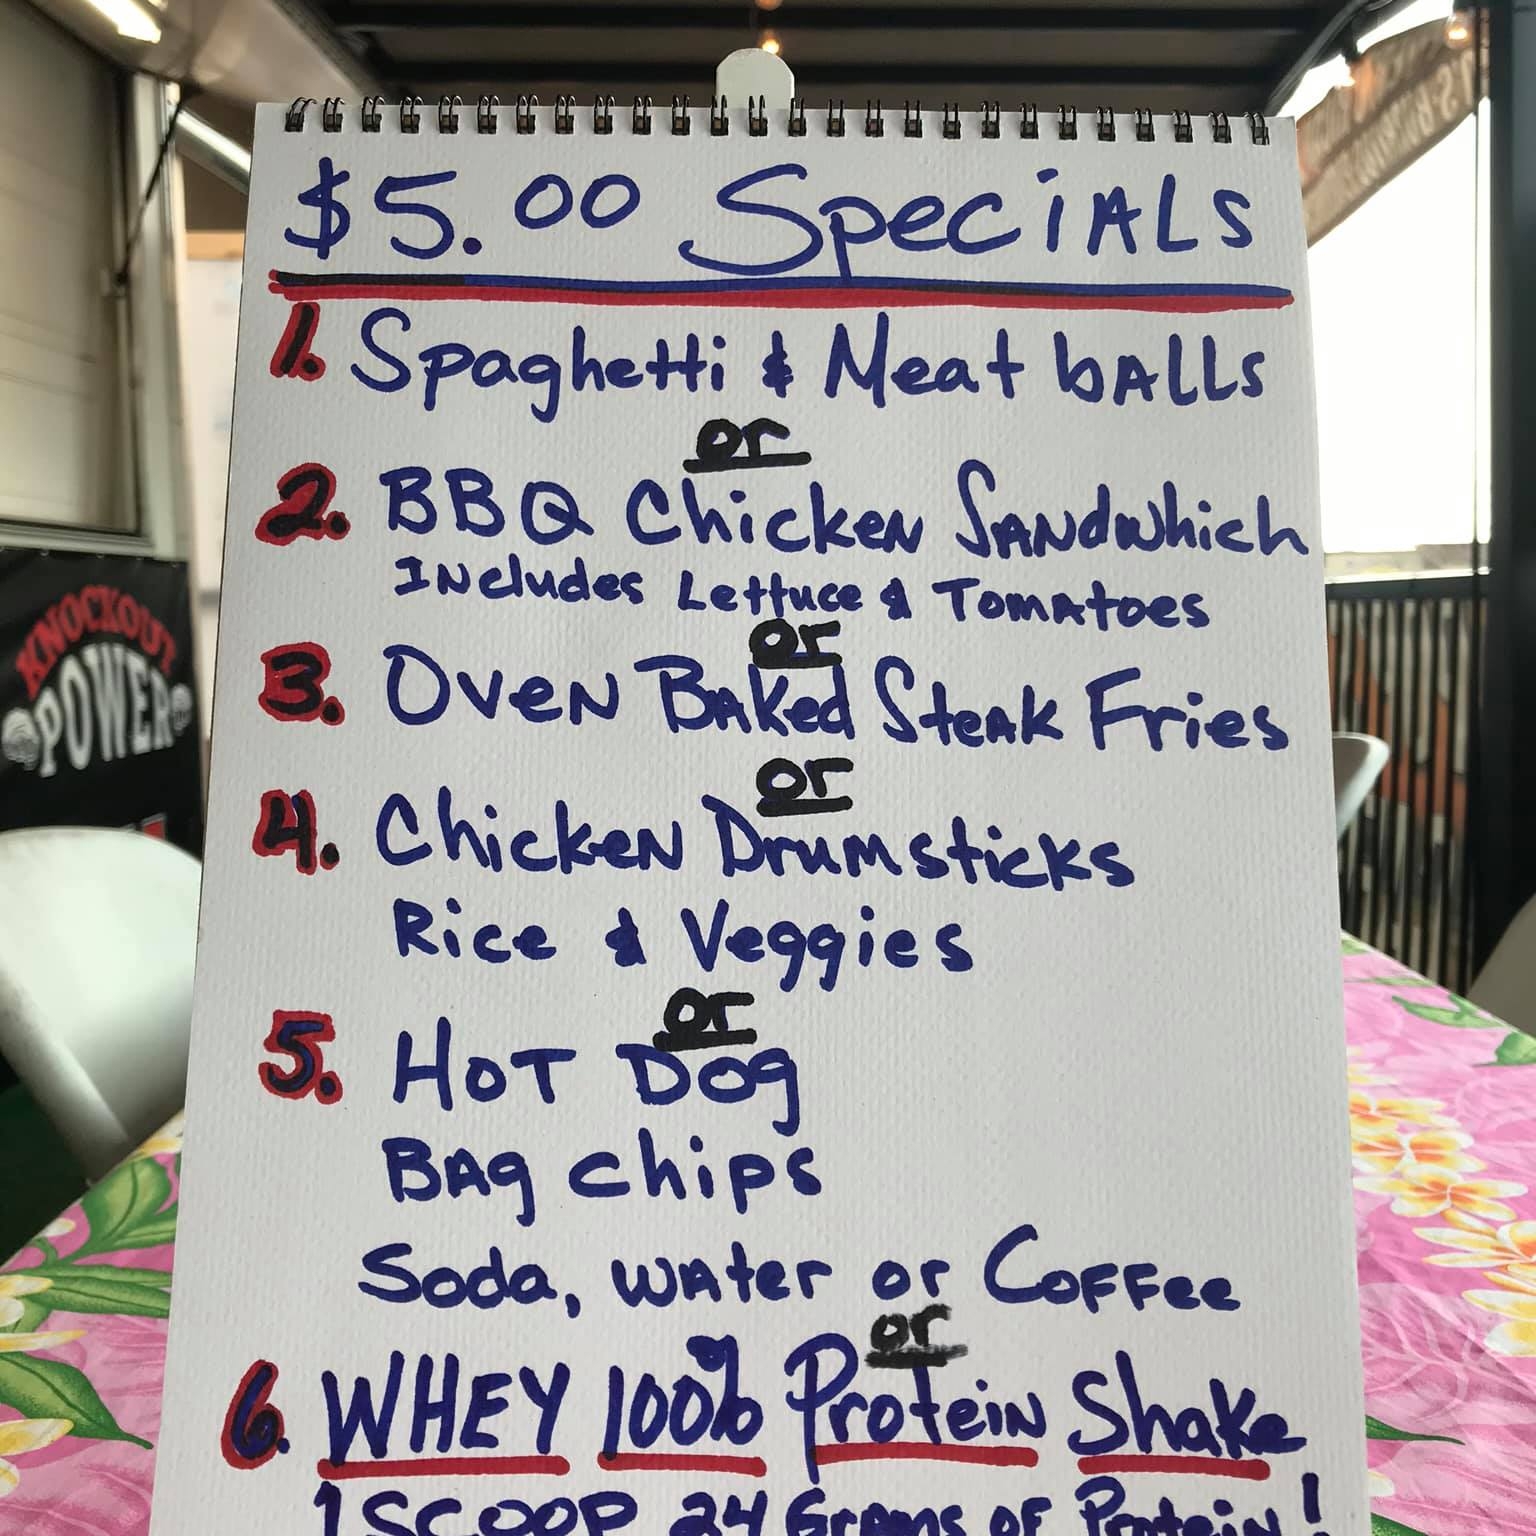 $5.00 SpeciALs
1. Spaghetti & Meat bALLs
or
2. BBQ ChickeN SANdwhich
INcludes Lettuce & TomAtoes
or
3. OveN BAked SteAk Fries
or
4. ChickeN Drumsticks
Rice & Veggies
or
5. HoT Dog
BAg chips
Soda, wAter or CoFFee
or
6. WHEY 100% ProteiN Shake
1 SCOOP 24 Grams of Protein!
KNOCKOUT
POWER